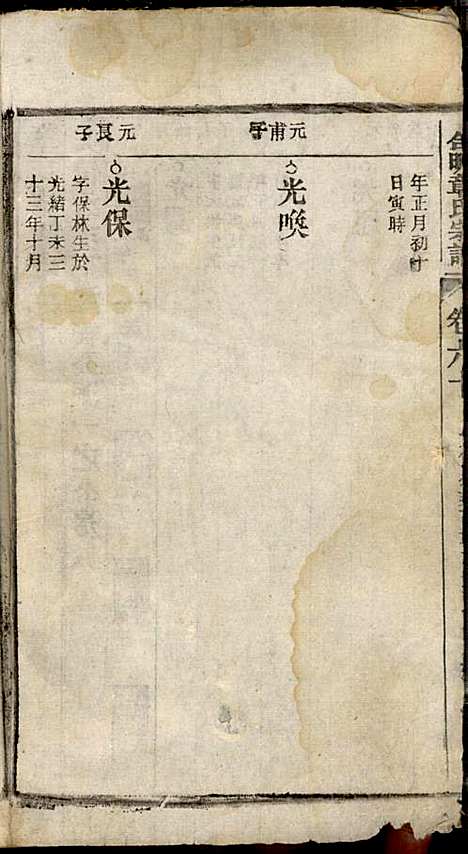 章氏宗譜
卷六十
年正月初十
日寅時
元甫子
光喚
元良子
光保
字保林生於
光緒丁未三
十三年十月